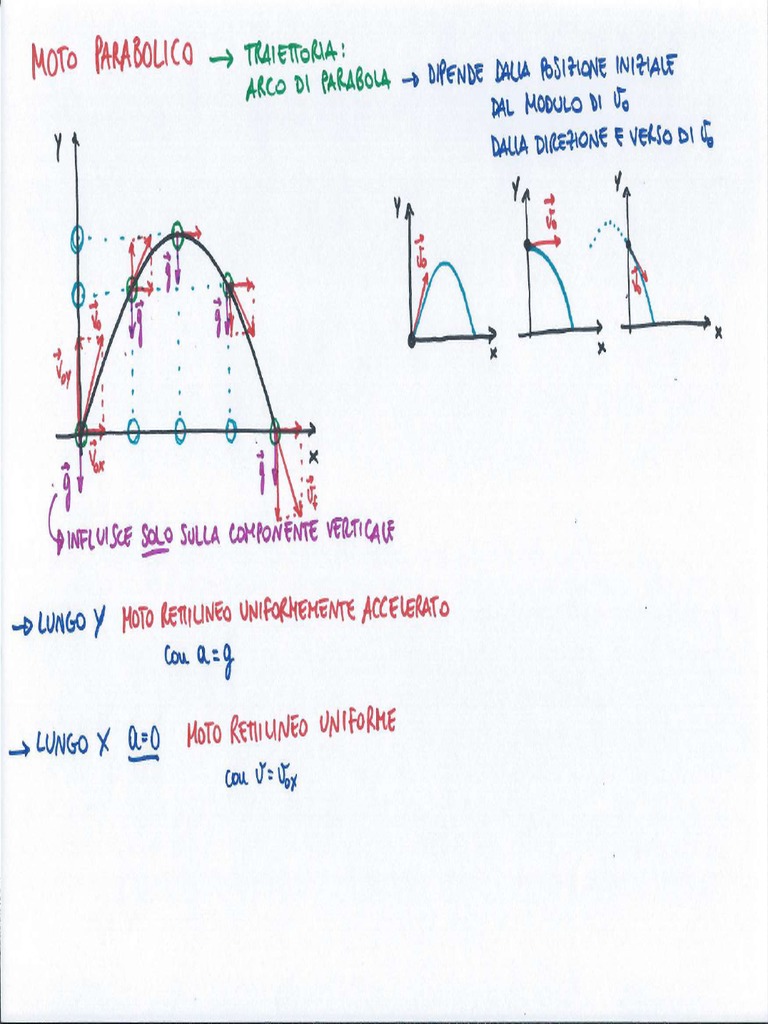 MOTO PARABOLICO → TRAIETTORIA:
ARCO DI PARABOLA → DIPENDE DALLA POSIZIONE INIZIALE
DAL MODULO DI v₀
DALLA DIREZIONE E VERSO DI v₀
y
y
y
y
v⃗₀
v⃗₀
v⃗₀
x
x
x
g⃗
g⃗
g⃗
v⃗₀
v⃗₀y
v⃗₀x
x
g⃗
g⃗
v⃗f
INFLUISCE SOLO SULLA COMPONENTE VERTICALE
→ LUNGO Y MOTO RETTILINEO UNIFORMEMENTE ACCELERATO
con a=g
→ LUNGO X a=0 MOTO RETTILINEO UNIFORME
con v=v₀x